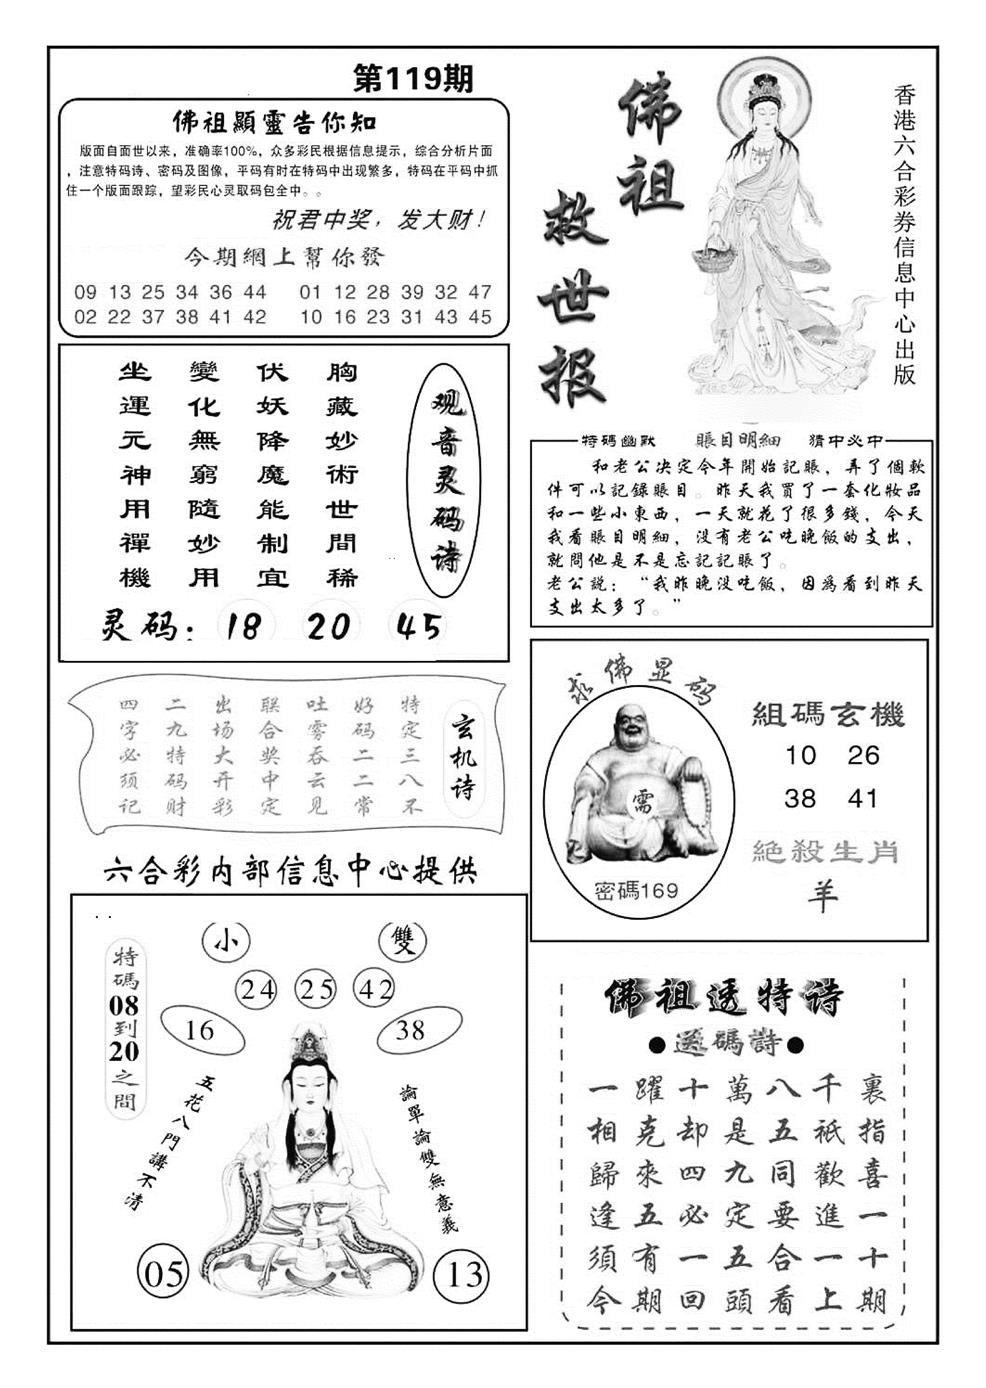 第119期
佛祖顯靈告你知
版面自面世以来，准确率100%，众多彩民根据信息提示，综合分析片面
，注意特码诗、密码及图像，平码有时在特码中出现繁多，特码在平码中抓
住一个版面跟踪，望彩民心灵取码包全中。。
祝君中奖，发大财！
今期網上幫你發
09 13 25 34 36 44 01 12 28 39 32 47
02 22 37 38 41 42 10 16 23 31 43 45
佛祖
救世报
香港六合彩券信息中心出版
观音灵码诗
胸藏妙術世間稀
伏妖降魔能制宜
變化無窮隨妙用
坐運元神用禪機
灵码：18 20 45
特碼幽默 賬目明細 猜中必中
和老公决定今年開始記賬，弄了個軟
件可以記錄賬目。昨天我買了一套化妝品
和一些小東西，一天就花了很多錢，今天
我看賬目明細，没有老公吃晚飯的支出，
就問他是不是忘記記賬了。
老公説：“我昨晚没吃飯，因爲看到昨天
支出太多了。”
玄机诗
特定三八不
好码二二常
吐雾吞云见
联合奖中定
出场大开彩
二九特码财
四字必须记
六合彩内部信息中心提供
求佛显码
需
密碼169
組碼玄機
10 26
38 41
絕殺生肖
羊
小 雙
24 25 42
16 38
特碼08到20之間
五花八門講不清
論單論雙無意義
05 13
佛祖透特诗
●送碼詩●
一躍十萬八千裏
相克却是五祇指
歸來四九同歡喜
逢五必定要進一
須有一五合一十
今期回頭看上期